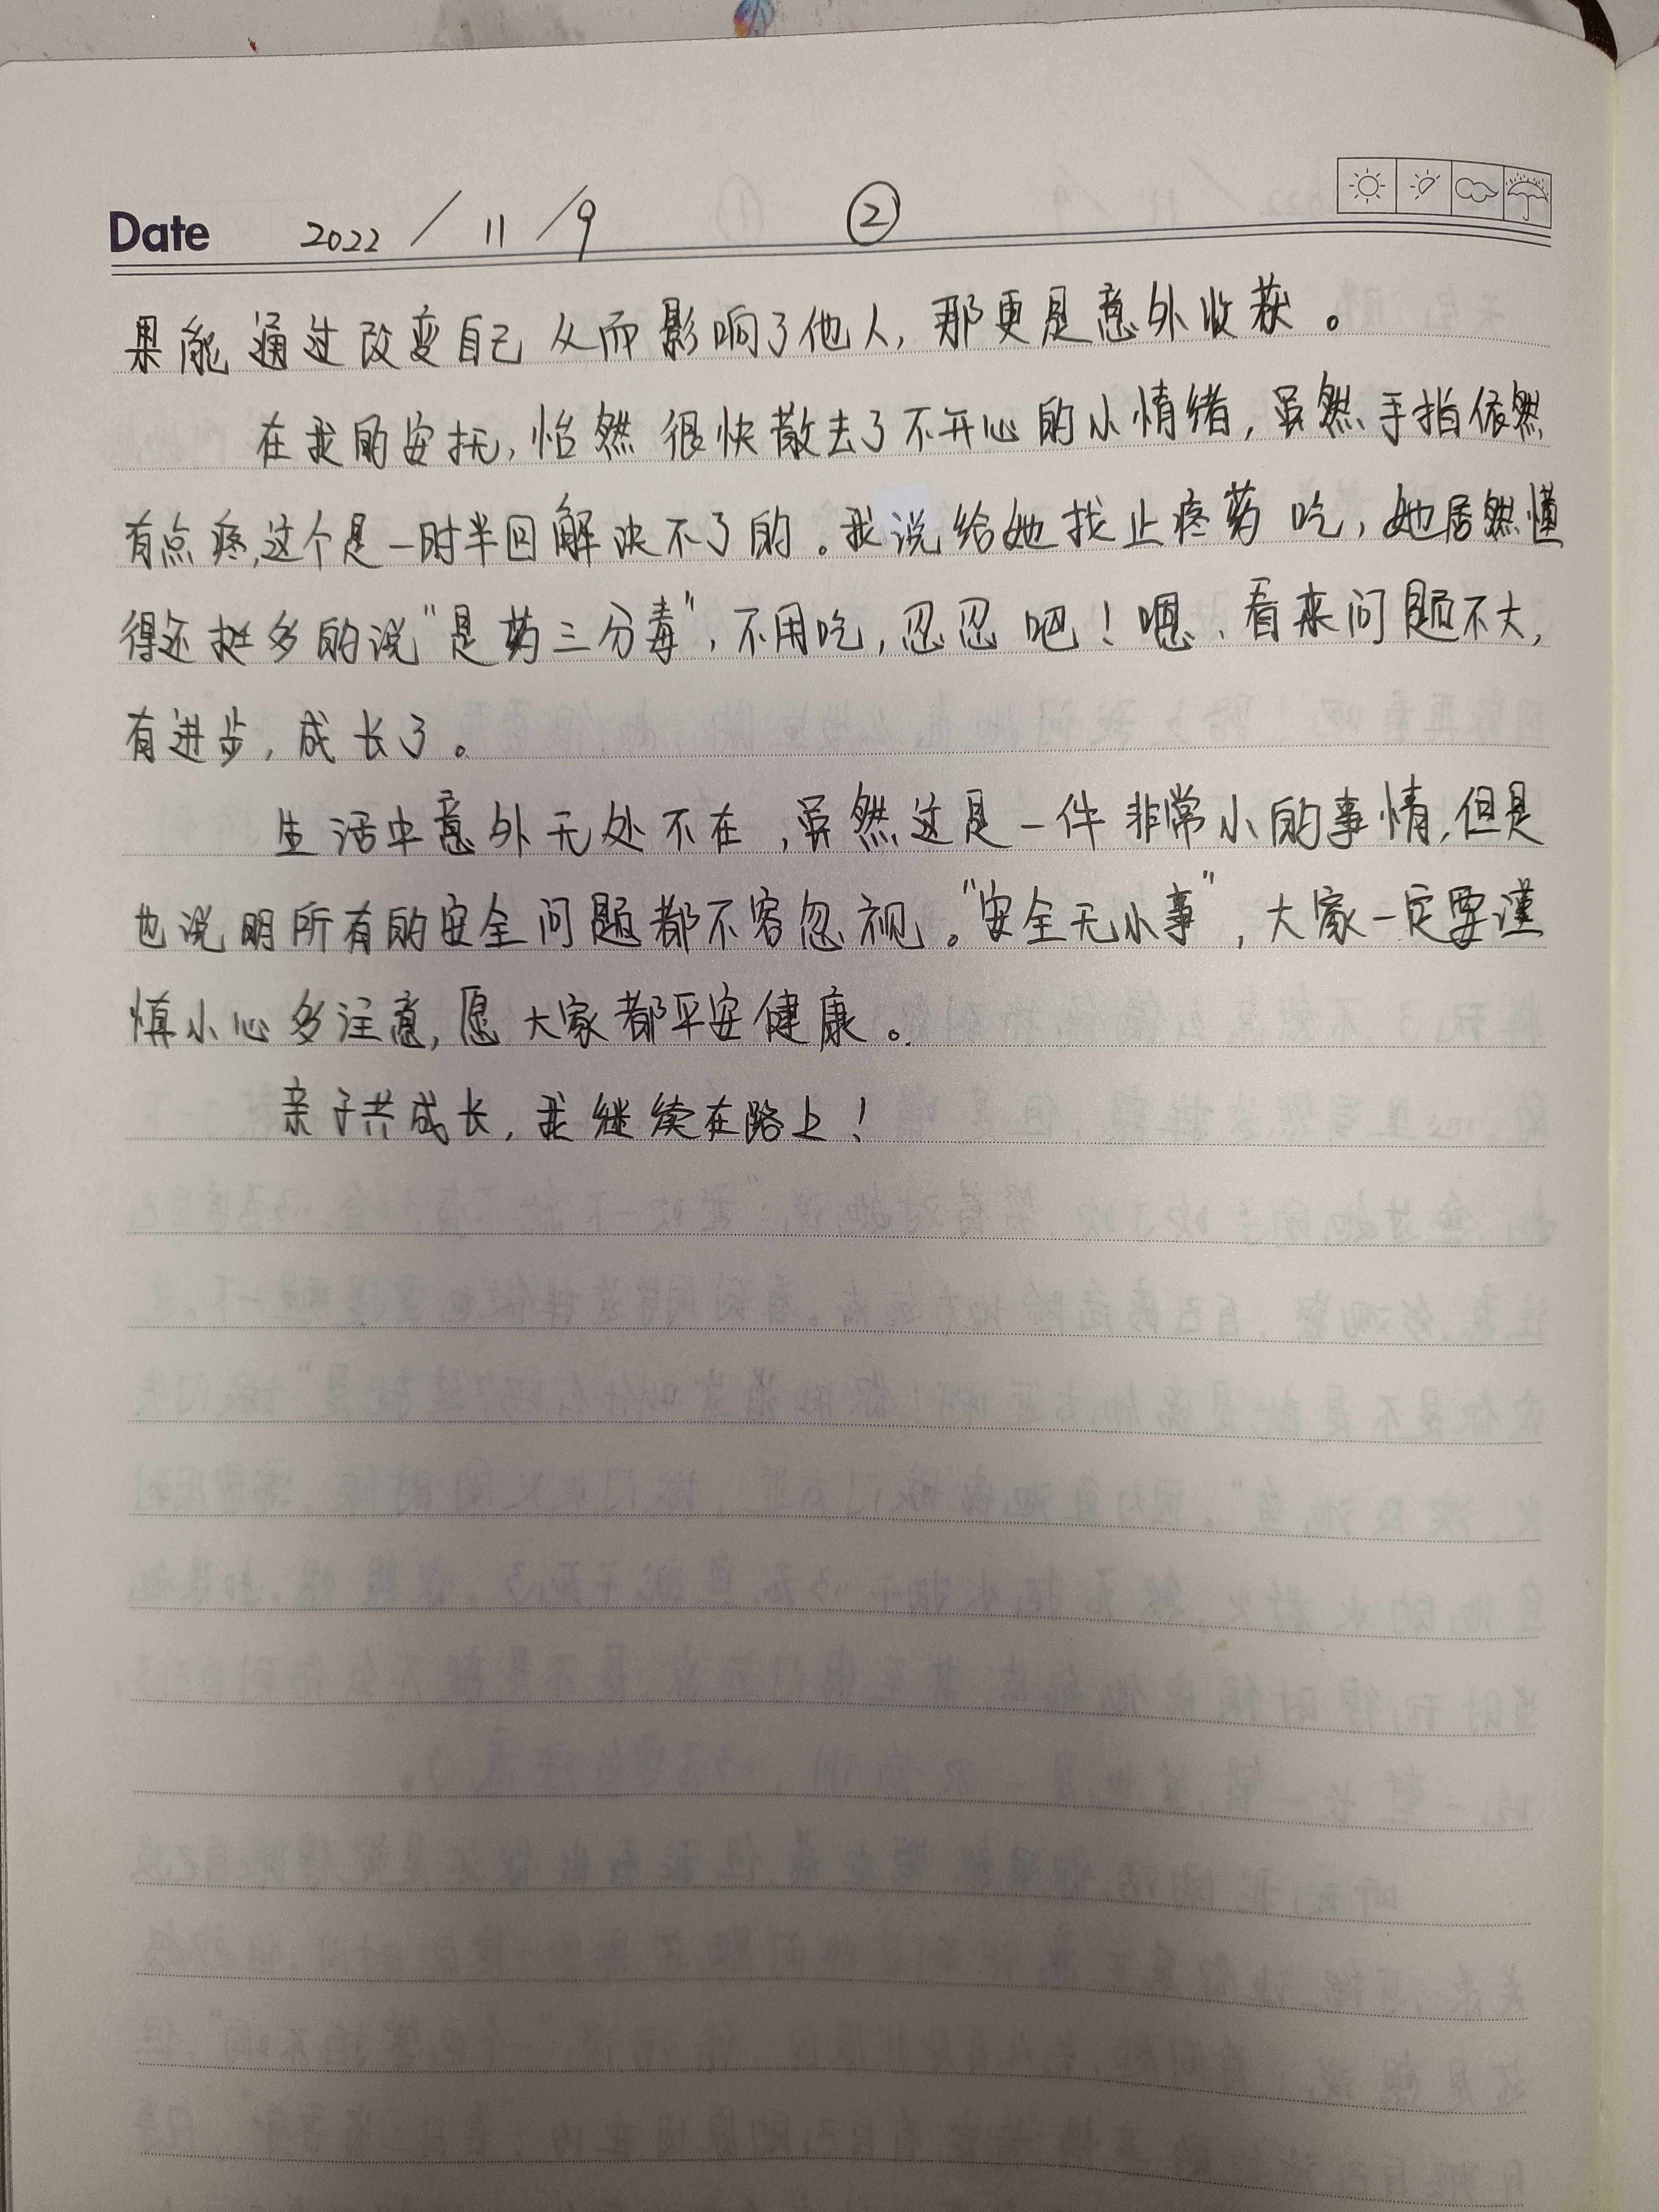 Date 2022 / 11 / 9 ②
果能通过改变自己从而影响了他人,那更是意外收获。
在我的安抚,怡然很快散去了不开心的小情绪,虽然手指依然
有点疼,这个是一时半回解决不了的。我说给她找止疼药吃,她居然懂
得还挺多的说"是药三分毒",不用吃,忍忍吧!嗯、看来问题不大,
有进步,成长了。
生活中意外无处不在,虽然这是一件非常小的事情,但是
也说明所有的安全问题都不容忽视。"安全无小事",大家一定要谨
慎小心多注意,愿大家都平安健康。
亲子共成长,我继续在路上!